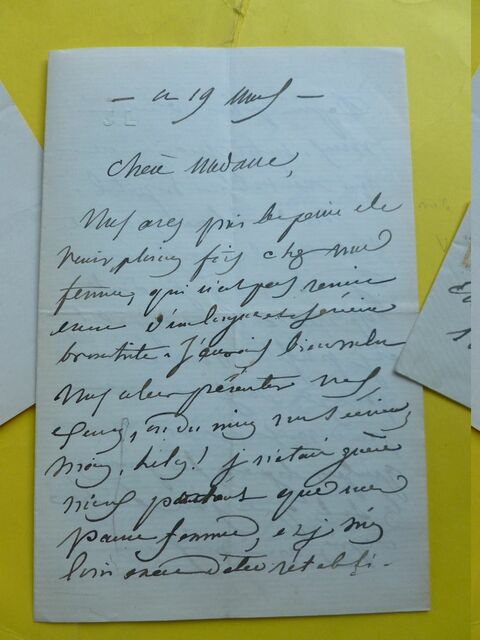 — ce 19 Mars —
Chère Madame,
Vous avez pris la peine de
venir plusieurs fois chez ma
femme, qui n'est pas remise
encore d'une longue et sérieuse
bronchite. J'aurais bien voulu
vous aller présenter nos
excuses, ou du moins vous écrire,
mais, hélas! je n'étais guère
mieux portant que ma
pauvre femme, et je suis
loin encore d'être rétabli.